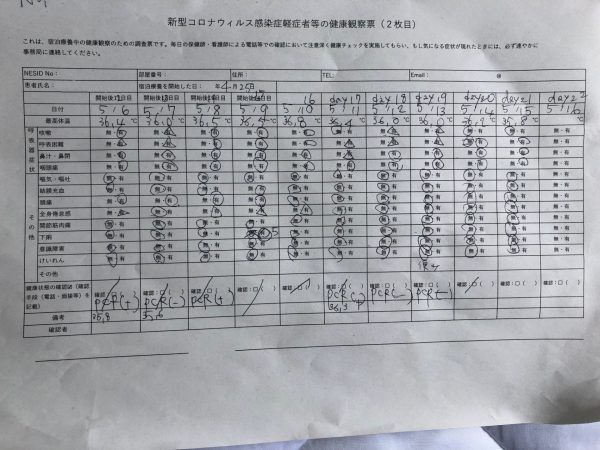 新型コロナウィルス感染症軽症者等の健康観察票（2枚目）
これは、宿泊療養中の健康観察のための調査票です。毎日の保健師・看護師による電話等での確認において注意深く健康チェックを実施してもらい、もし気になる症状が現れたときには、必ず速やかに
事務局に連絡してください。
NESID No： 部屋番号： 住所： TEL: Email： @
患者氏名： 宿泊療養を開始した日： 年4月25日
16 day17 day18 day19 day20 day21
日付 5/6 5/7 5/8 5/9 5/10 5/11 5/12 5/13 5/14 5/15 5/16
最高体温 36.4℃ 36.0℃ 36.5℃ 36.4℃ 36.8℃ 36.4℃ 36.0℃ 36.0℃ 36.2℃ 35.8℃ ℃
呼吸器症状
咳嗽 無・有 無・有 無・有 無・有 無・有 無・有 無・有 無・有 無・有 無・有 無・有
呼吸困難 無・有 無・有 無・有 無・有 無・有 無・有 無・有 無・有 無・有 無・有 無・有
鼻汁・鼻閉 無・有 無・有 無・有 無・有 無・有 無・有 無・有 無・有 無・有 無・有 無・有
咽頭痛 無・有 無・有 無・有 無・有 無・有 無・有 無・有 無・有 無・有 無・有 無・有
その他
嘔気・嘔吐 無・有 無・有 無・有 無・有 無・有 無・有 無・有 無・有 無・有 無・有 無・有
結膜充血 無・有 無・有 無・有 無・有 無・有 無・有 無・有 無・有 無・有 無・有 無・有
頭痛 無・有 無・有 無・有 無・有 無・有 無・有 無・有 無・有 無・有 無・有 無・有
全身倦怠感 無・有 無・有 無・有 無・有 無・有 無・有 無・有 無・有 無・有 無・有 無・有
関節筋肉痛 無・有 無・有 無・有 無・有 無・有 無・有 無・有 無・有 無・有 無・有 無・有
下痢 無・有 無・有 無・有 無・有 無・有 無・有 無・有 無・有 無・有 無・有
意識障害 無・有 無・有 無・有 無・有 無・有 無・有 無・有 無・有 無・有 無・有 無・有
けいれん 無・有 無・有 無・有 無・有 無・有 無・有 無・有 無・有 無・有 無・有 無・有
その他
健康状態の確認欄（確認
手段（電話・面接等）を
記載）
確認：□（ ） 確認：□（ ） 確認：□（ ） 確認：□（ ） 確認：□（ ） 確認：□（ ） 確認：□（ ） 確認：□（ ） 確認：□（ ） 確認：□（ ） 確認：□（ ）
PCR(+) PCR(-) PCR(+) PCR( PCR(-) PCR(-)
備考 35.8 36.3
確認者